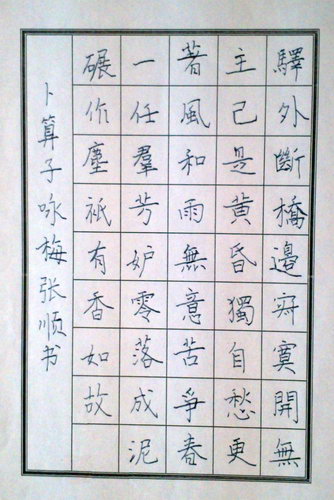 驛外斷橋邊寂寞開無
主己是黃昏獨自愁更
著風和雨無意苦爭春
一任羣芳妒零落成泥
碾作塵祇有香如故
卜算子咏梅张顺书